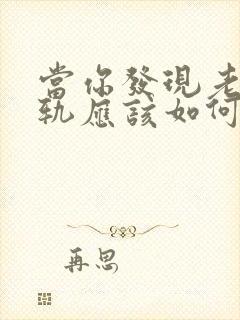 當你發現老
軌應該如何
再思